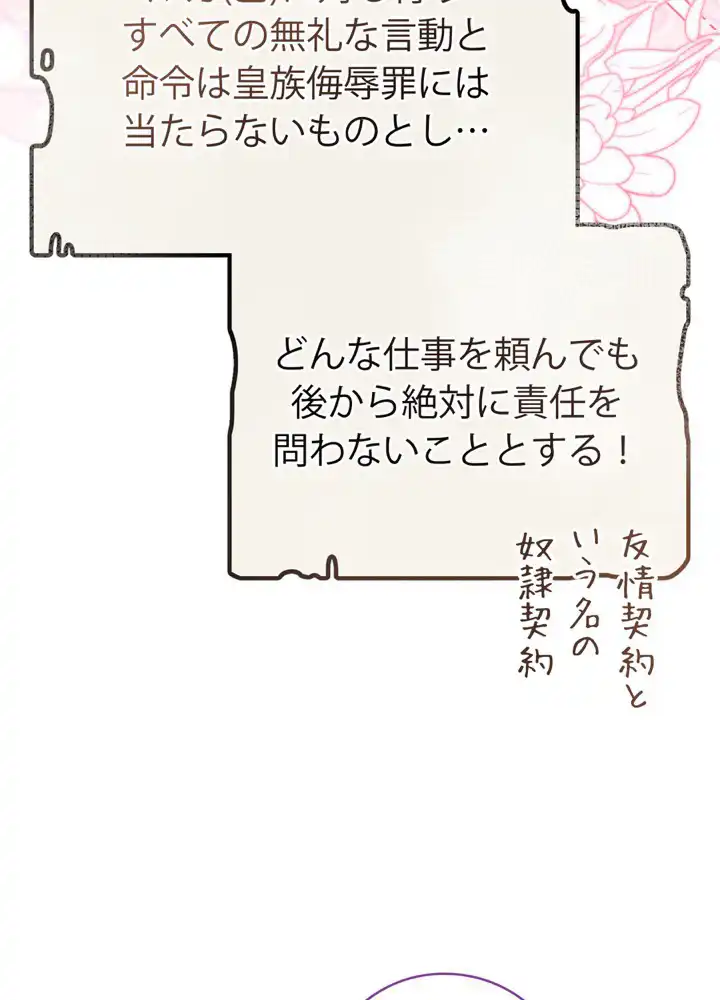 すべての無礼な言動と
命令は皇族侮辱罪には
当たらないものとし…
どんな仕事を頼んでも
後から絶対に責任を
問わないこととする！
友情契約と
いう名の
奴隷契約